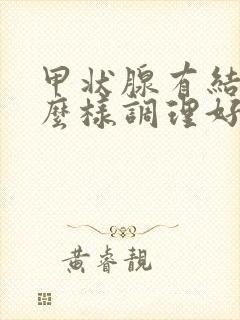 甲状腺有結
麼樣調理好
黃睿靚